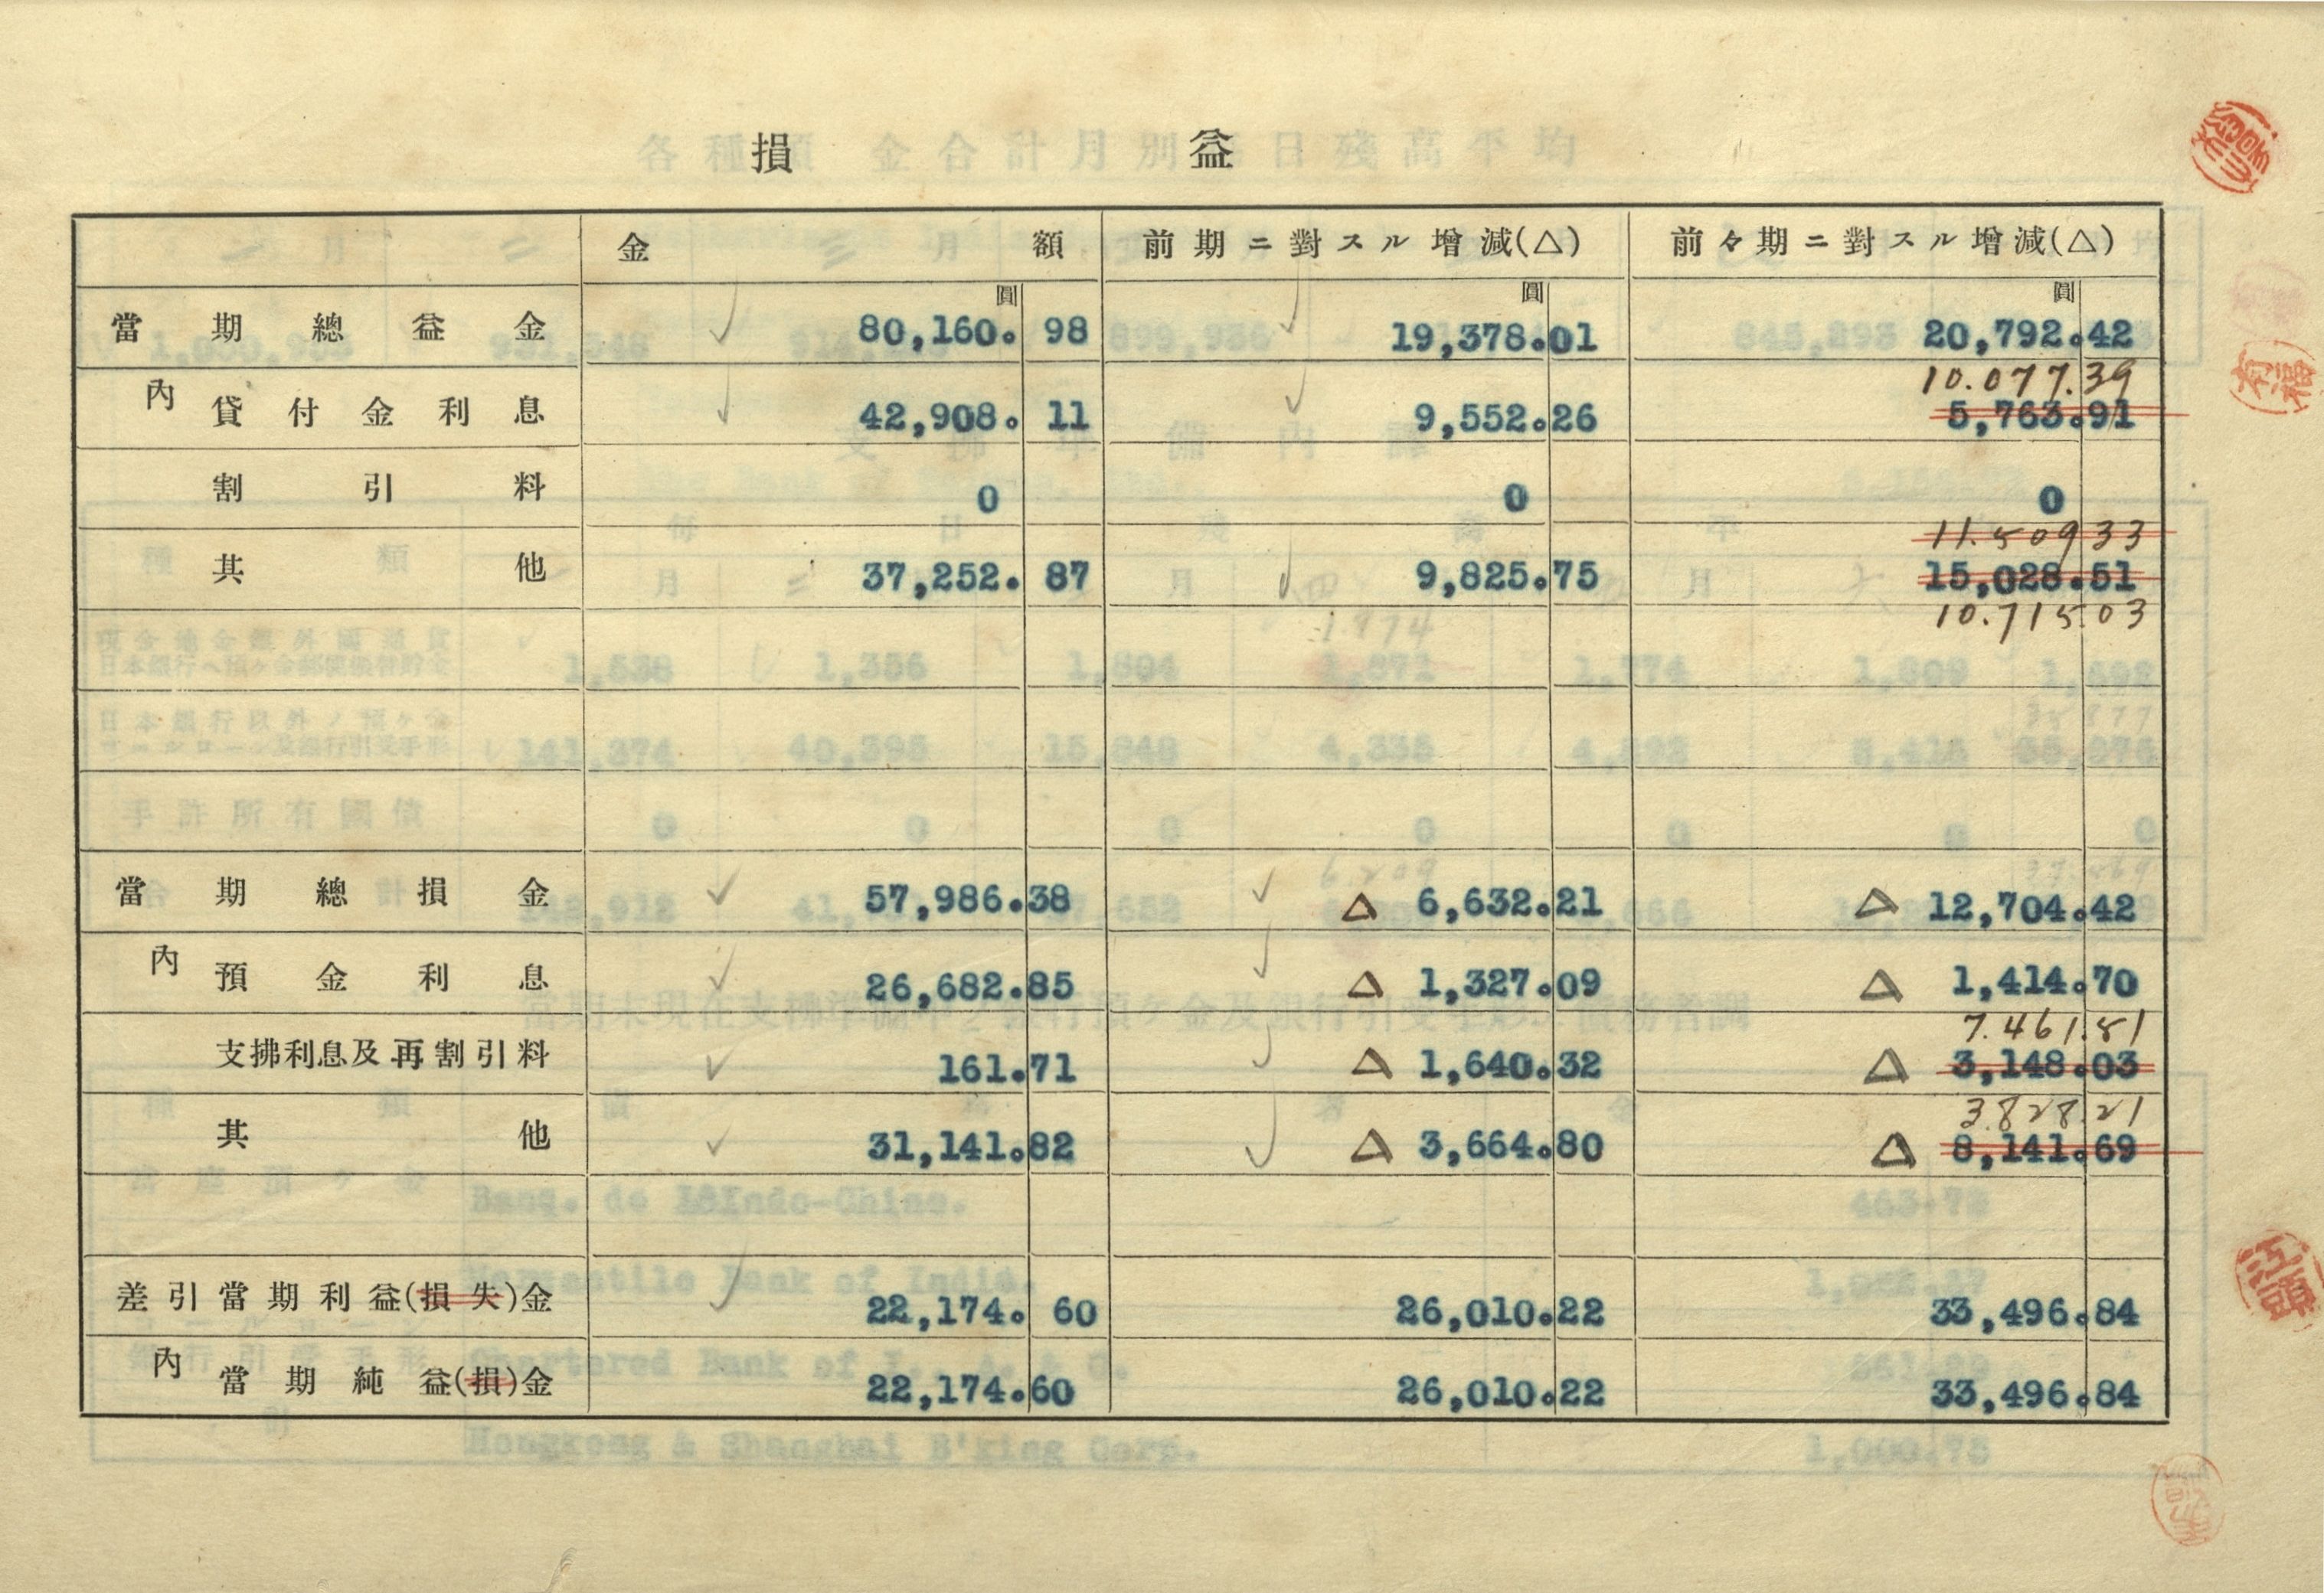 損益
金額 前期ニ對スル增減(△) 前々期ニ對スル增減(△)
圓 圓 圓
當期總益金 80,160.98 19,378.01 20,792.42
10.077.39
內 貸付金利息 42,908.11 9,552.26 5,763.91
割引料 0 0 0
11.509 33
其他 37,252.87 9,825.75 15,028.51
10.715.03
當期總損金 57,986.38 △ 6,632.21 △ 12,704.42
內 預金利息 26,682.85 △ 1,327.09 △ 1,414.70
7.461.81
支拂利息及再割引料 161.71 △ 1,640.32 △ 3,148.03
3.828.21
其他 31,141.82 △ 3,664.80 △ 8,141.69
差引當期利益(損失)金 22,174.60 26,010.22 33,496.84
內 當期純益(損)金 22,174.60 26,010.22 33,496.84